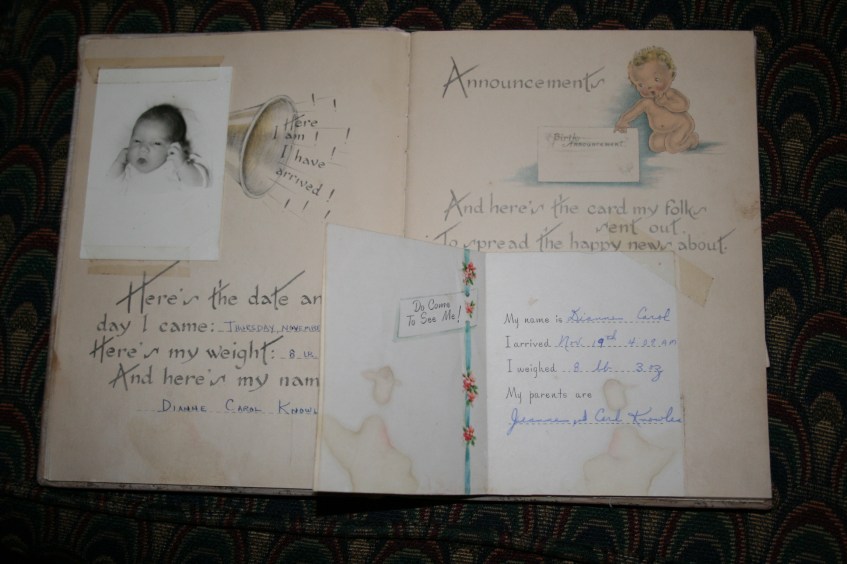 Here
I am!
I have
arrived!
Here's the date an
day I came: THURSDAY, NOVEMBE
Here's my weight: 8 LB.
And here's my nam
DIANNE CAROL KNOWL
Announcements
Birth
Announcement
And here's the card my folks
sent out.
To spread the happy news about.
Do Come
To See Me!
My name is Dianne Carol
I arrived Nov. 19th 4:29 AM
I weighed 8 lb. 3 oz
My parents are
Jeanne & Carl Knowles